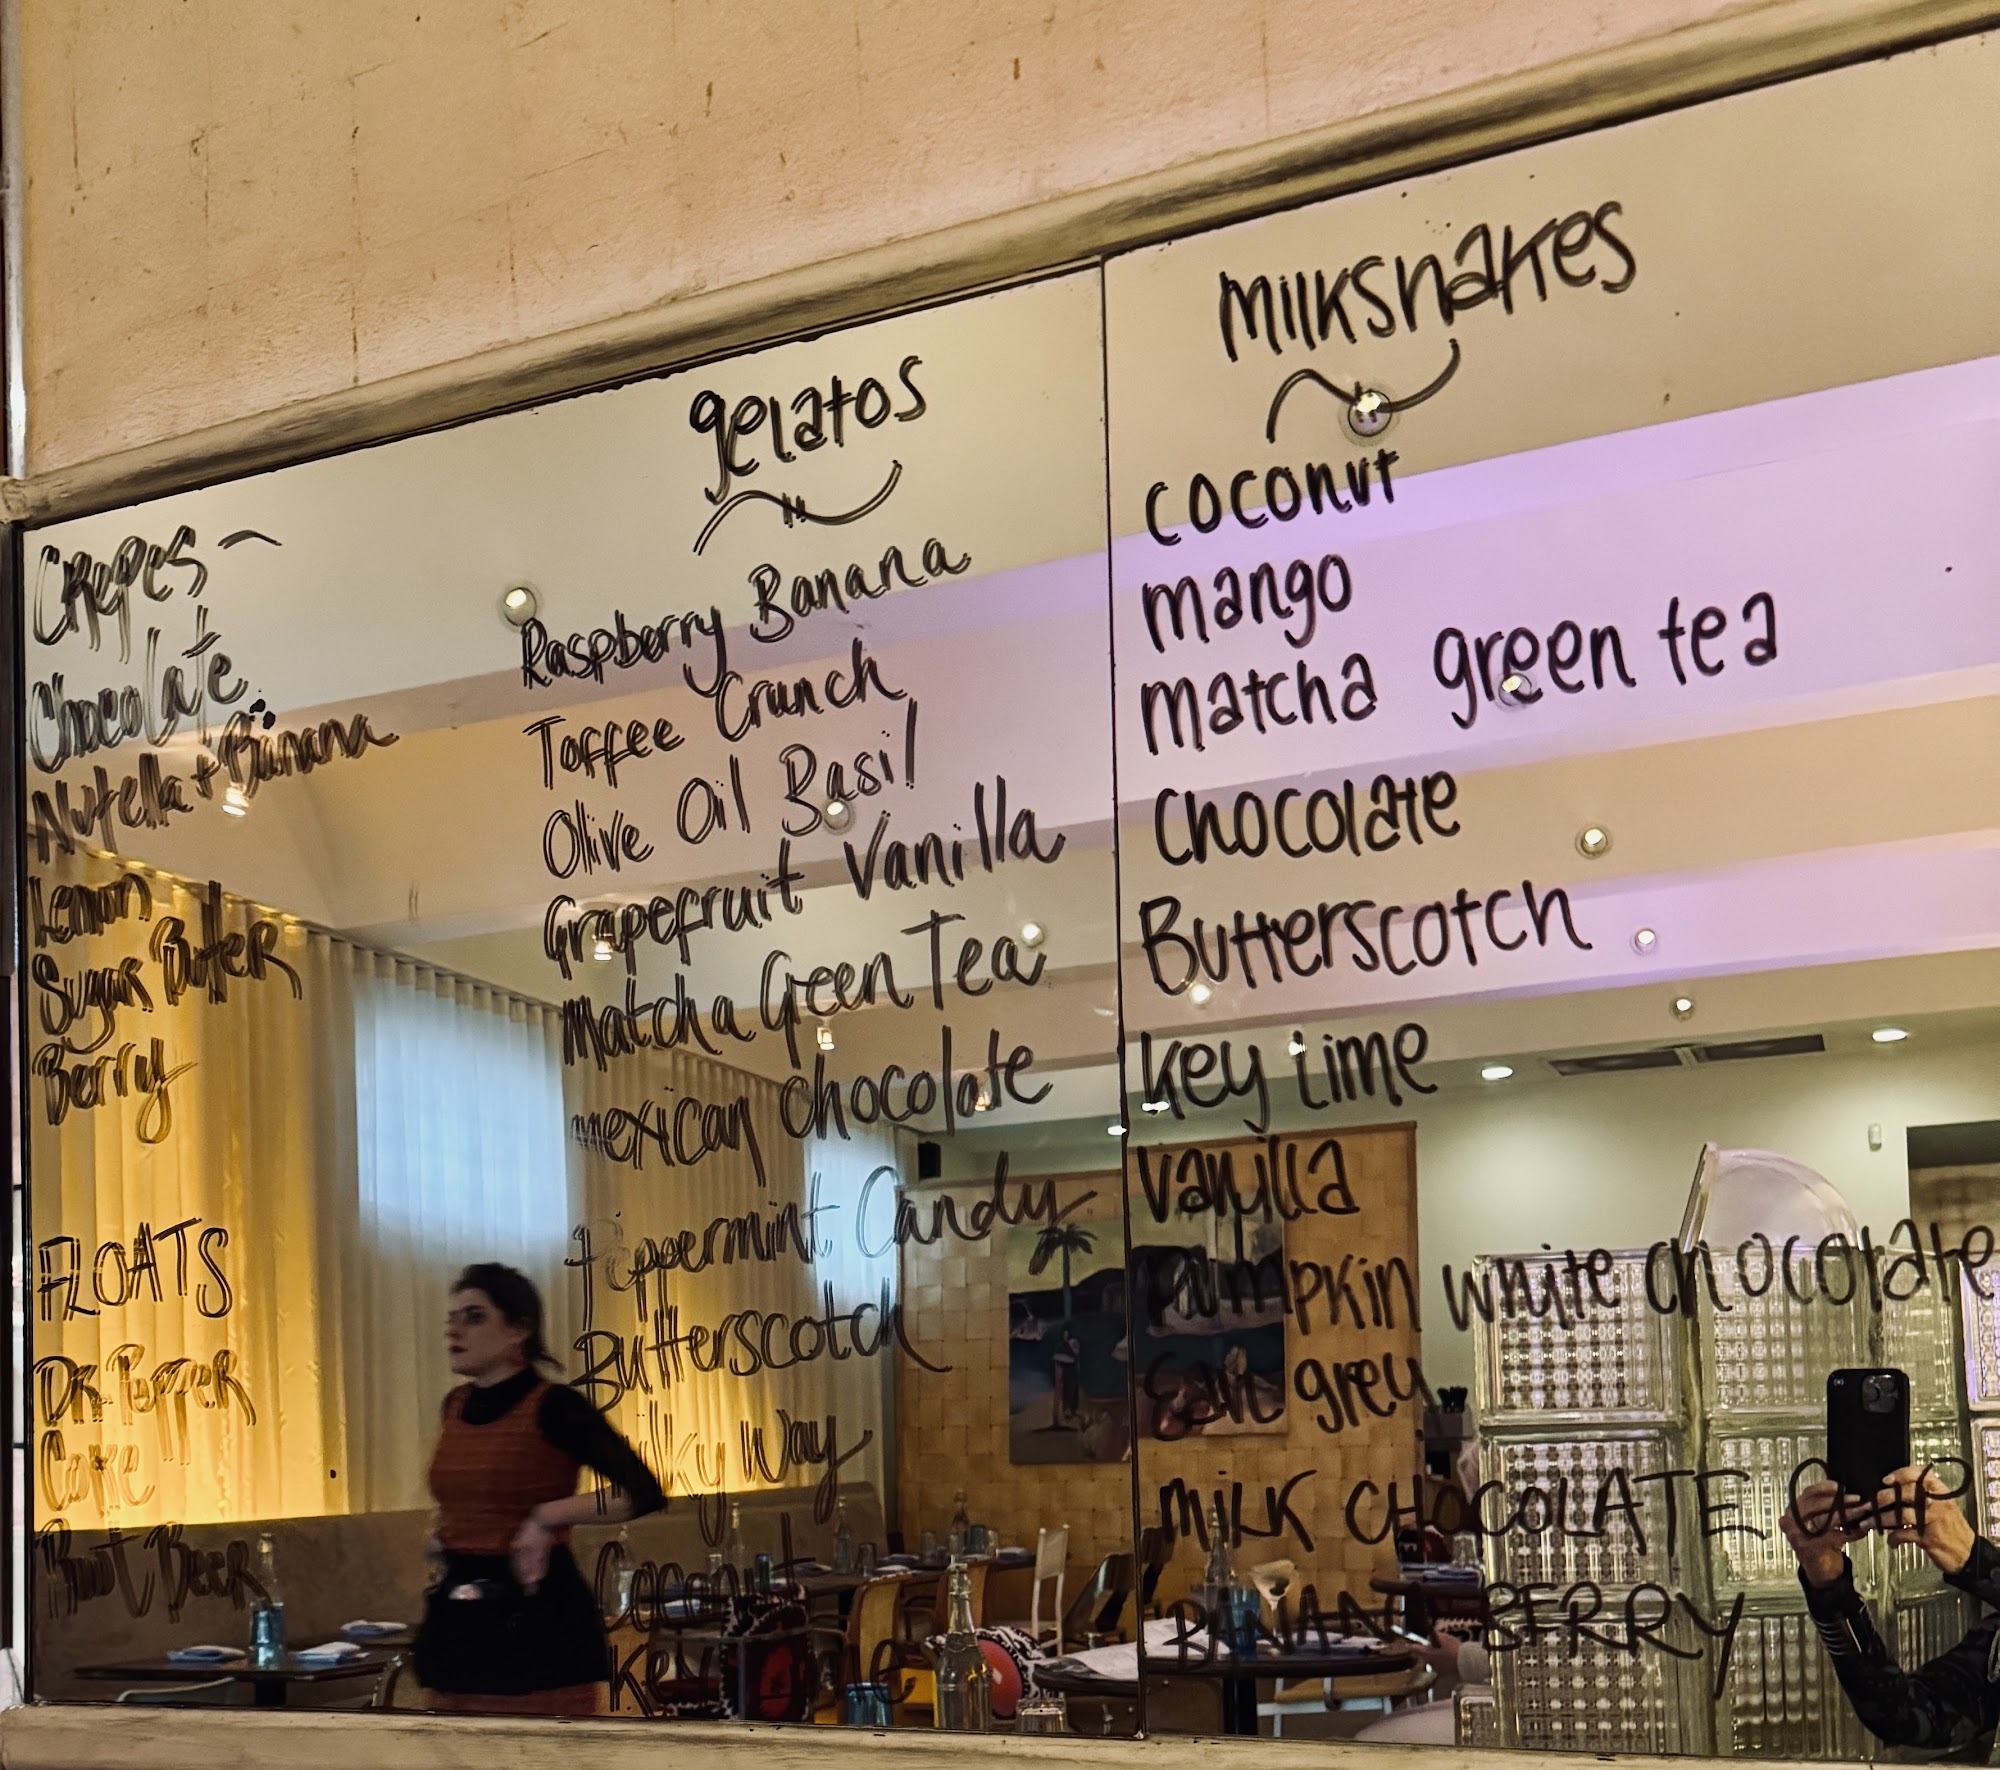 Crepes
Chocolate
Nutella + Banana
Lemon
Sugar Butter
Berry
FLOATS
DR. Pepper
Coke
Root Beer
gelatos
Raspberry Banana
Toffee Crunch
Olive Oil Basil
Grapefruit Vanilla
Matcha Green Tea
mexican chocolate
Peppermint Candy
Butterscotch
Milky Way
Coconut
Key Lime
milkshakes
coconut
mango
matcha green tea
chocolate
Butterscotch
Key Lime
vanilla
pumpkin white chocolate
earl grey
MILK CHOCOLATE CHIP
BANANA BERRY